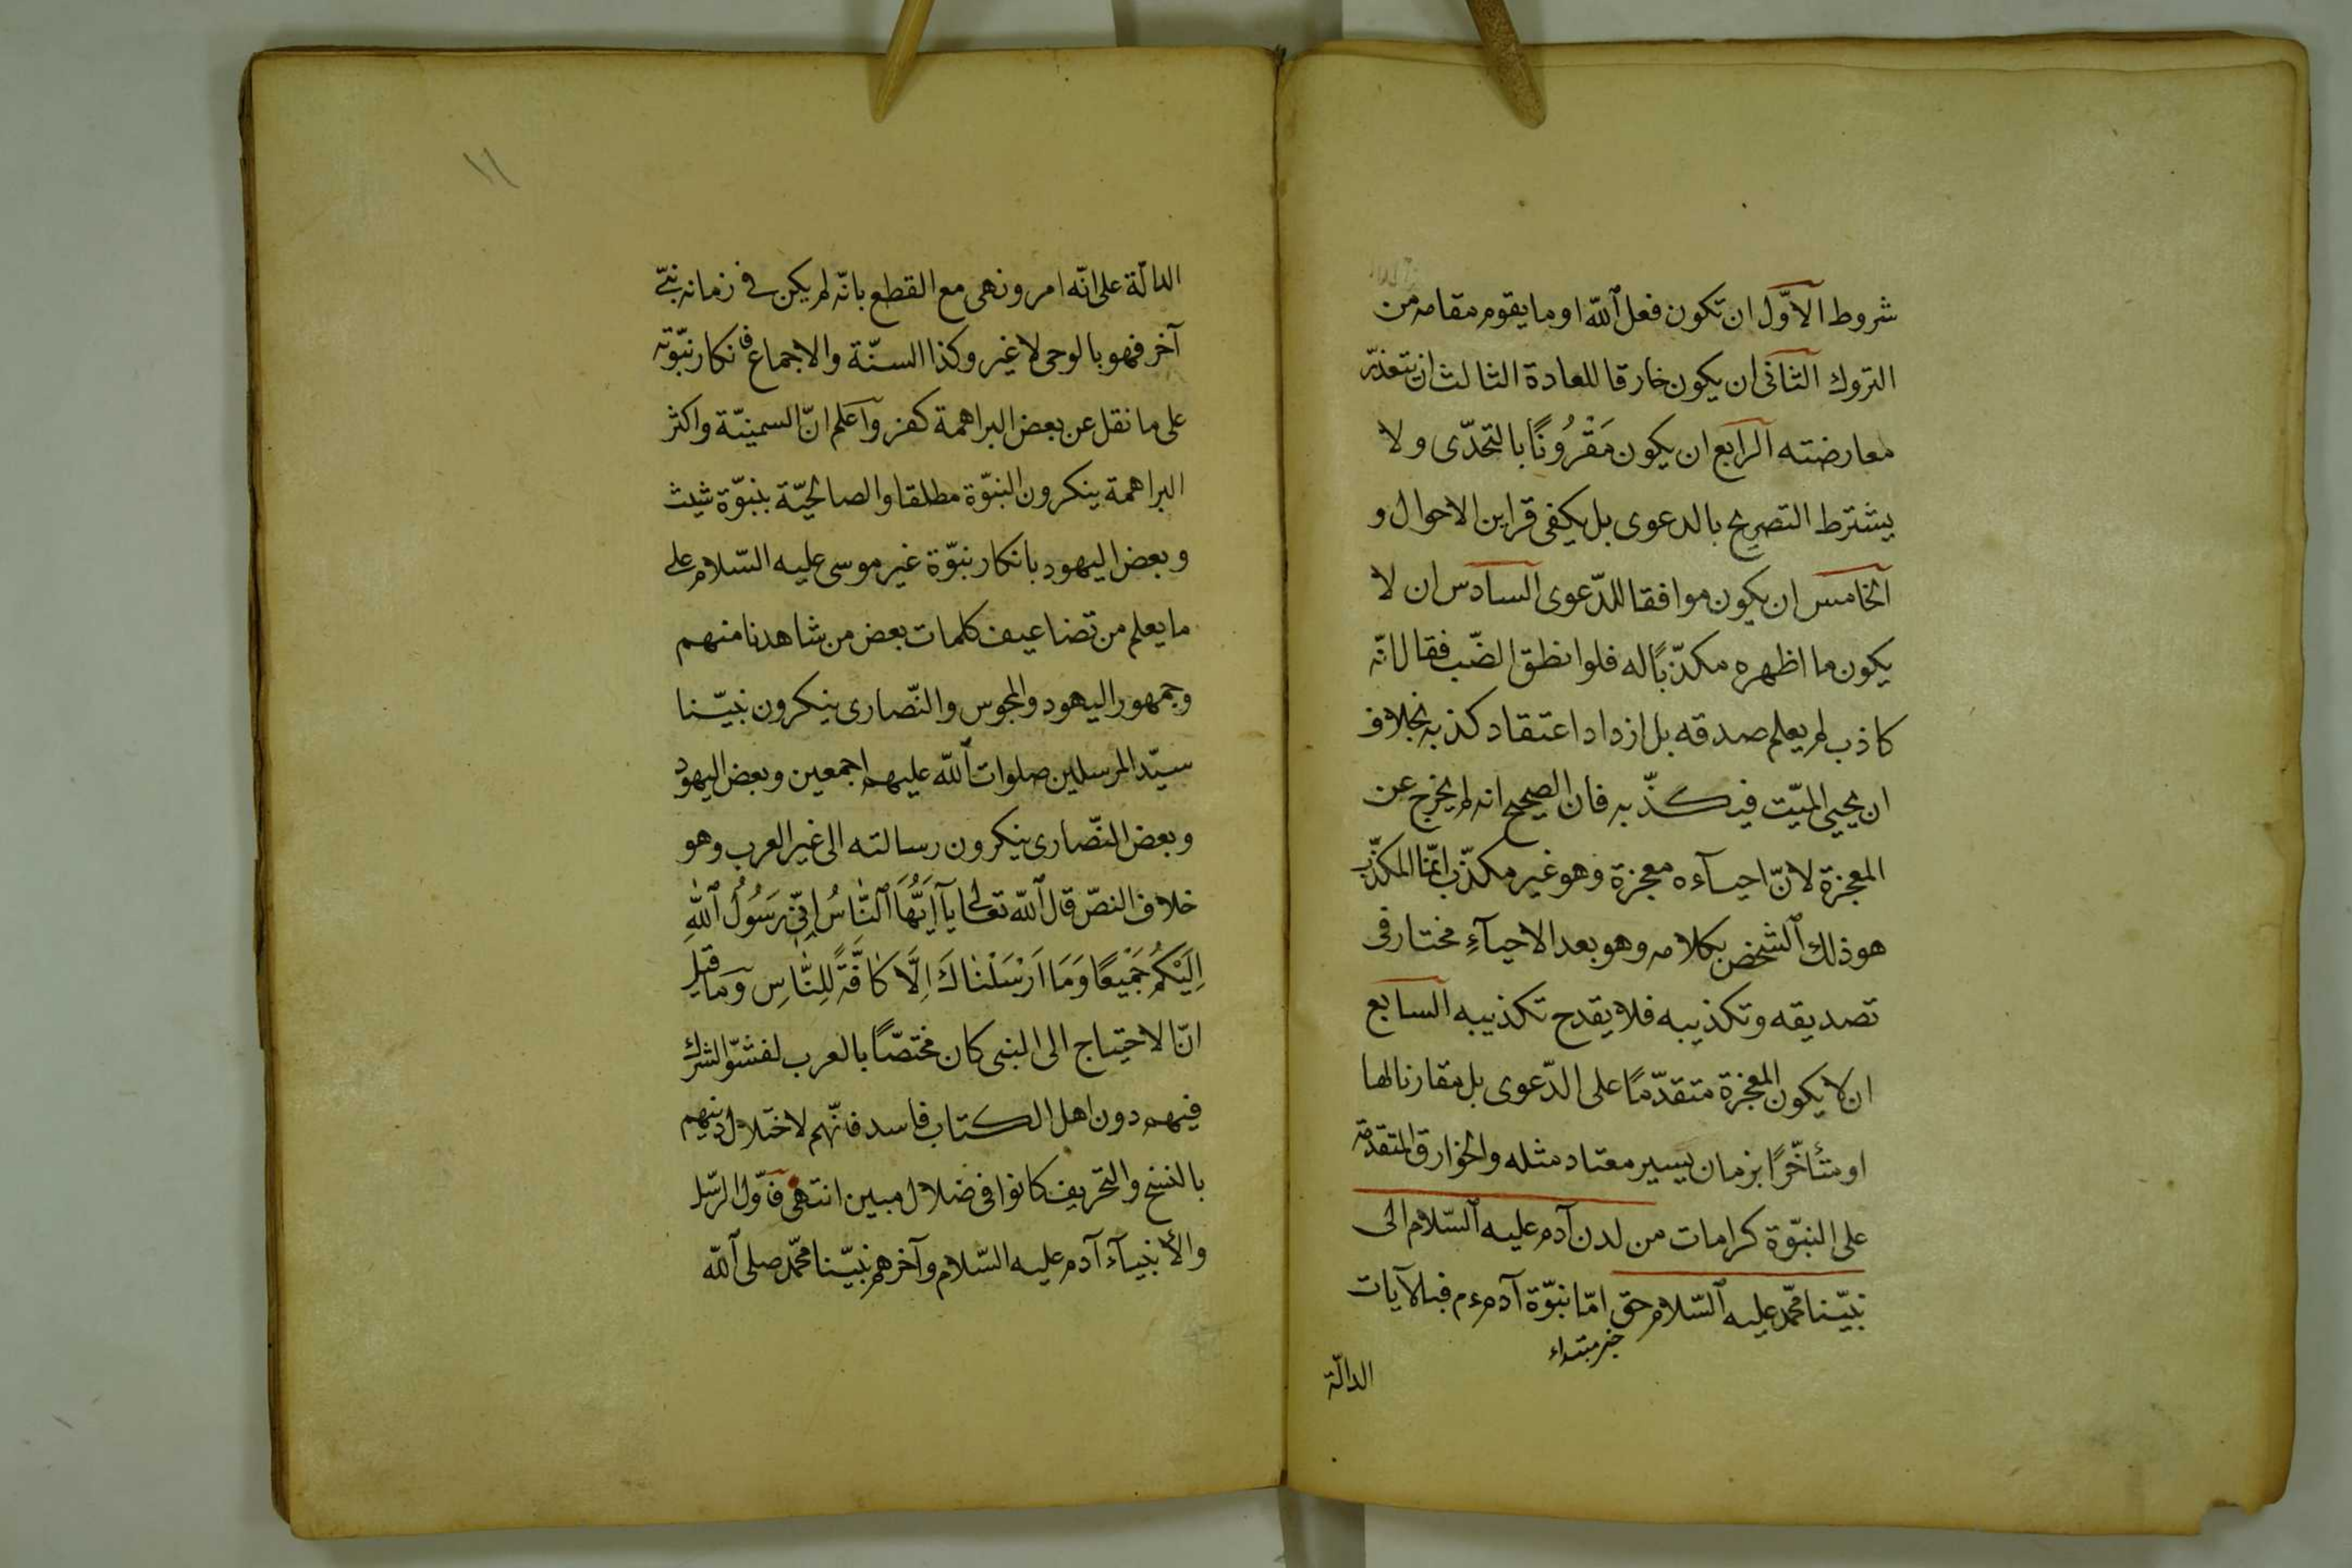 شروط الاوّل ان تكون فعل الله او ما يقوم مقامه من
التروك الثانى ان يكون خارقا للعادة الثالث ان يتعذّر
معارضته الرابع ان يكون مَقْرُونًا بالتحدّى ولا
يشترط التصريح بالدعوى بل يكفى قراين الاحوال و
الخامس ان يكون موافقا للدّعوى السادس ان لا
يكون ما اظهره مكذّبًا له فلو انطق الضّب فقال انّه
كاذب لم يعلم صدقه بل ازداد اعتقاد كذبه بخلاف
ان يحيي الميّت فيكذّبه فان الصحيح انه لم يخرج عن
المعجزة لانّ احيآءه معجزة وهو غير مكذّب انّما المكذّب
هو ذلك الشخص بكلامه وهو بعد الاحيآءِ مختار فى
تصديقه وتكذيبه فلا يقدح تكذيبه السابع
ان لا يكون المعجزة متقدّمًا على الدّعوى بل مقارنا لها
او متأخّرًا بزمان يسير معتاد مثله والخوارق المتقدّمة
على النبوّة كرامات من لدن آدم عليه السّلام الى
نبيّنا محمّد عليه السّلام حق امّا نبوّة آدم ءم فبالآيات
خبر مبتداء
الدالّة
١١
الدالّة على انّه امر ونهى مع القطع بانّه لم يكن فى زمانه نبىّ
آخر فهو بالوحى لا غير وكذا السنّة والاجماع فانكار نبوّته
على ما نقل عن بعض البراهمة كفر واعلم انّ السمنيّة واكثر
البراهمة ينكرون النبوّة مطلقا والصالحيّة بنبوّة شيث
وبعض اليهود بانكار نبوّة غير موسى عليه السّلام على
ما يعلم من تضاعيف كلمات بعض من شاهدنا منهم
وجمهور اليهود والمجوس والنّصارى ينكرون نبيّنا
سيّد المرسلين صلوات الله عليهم اجمعين وبعض اليهود
وبعض النّصارى ينكرون رسالته الى غير العرب وهو
خلاف النصّ قال الله تعالى يآ اَيُّهَا النَّاسُ اِنّى رَسُولُ اللهِ
اِلَيْكُمْ جَمِيعًا وَمَا اَرْسَلْنَاكَ اِلَّا كَافَّةً لِلنَّاسِ وما قيل
انّ الاحتياج الى النبى كان مختصّا بالعرب لفشوّ الشرك
فيهم دون اهل الكتاب فاسد فانّهم لاختلال دينهم
بالنسخ والتحريف كانوا فى ضلال مبين انتهى فاوّل الرّسل
والأنبيآء آدم عليه السّلام وآخرهم نبيّنا محمّد صلى الله